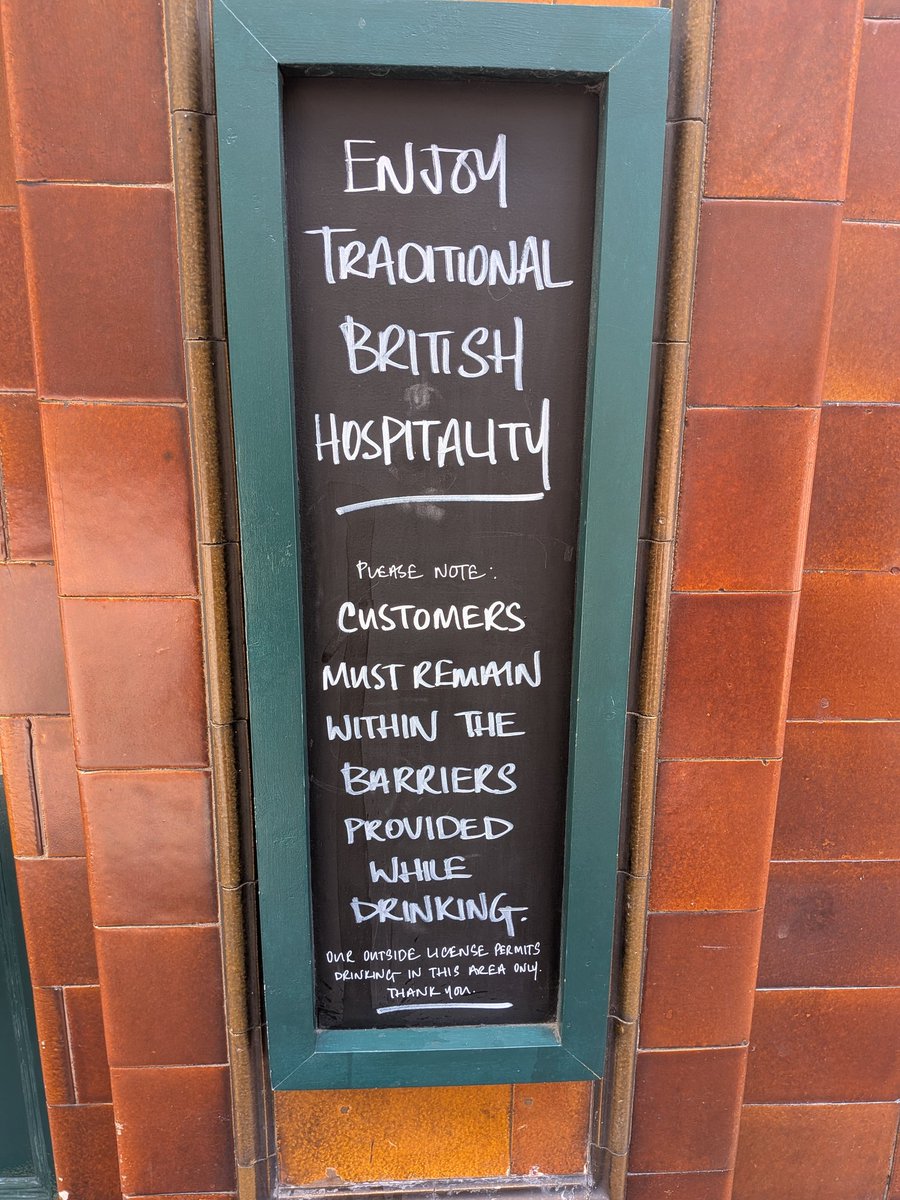 ENJOY
TRADITIONAL
BRITISH
HOSPITALITY
PLEASE NOTE:
CUSTOMERS
MUST REMAIN
WITHIN THE
BARRIERS
PROVIDED
WHILE
DRINKING.
OUR OUTSIDE LICENSE PERMITS
DRINKING IN THIS AREA ONLY.
THANK YOU.